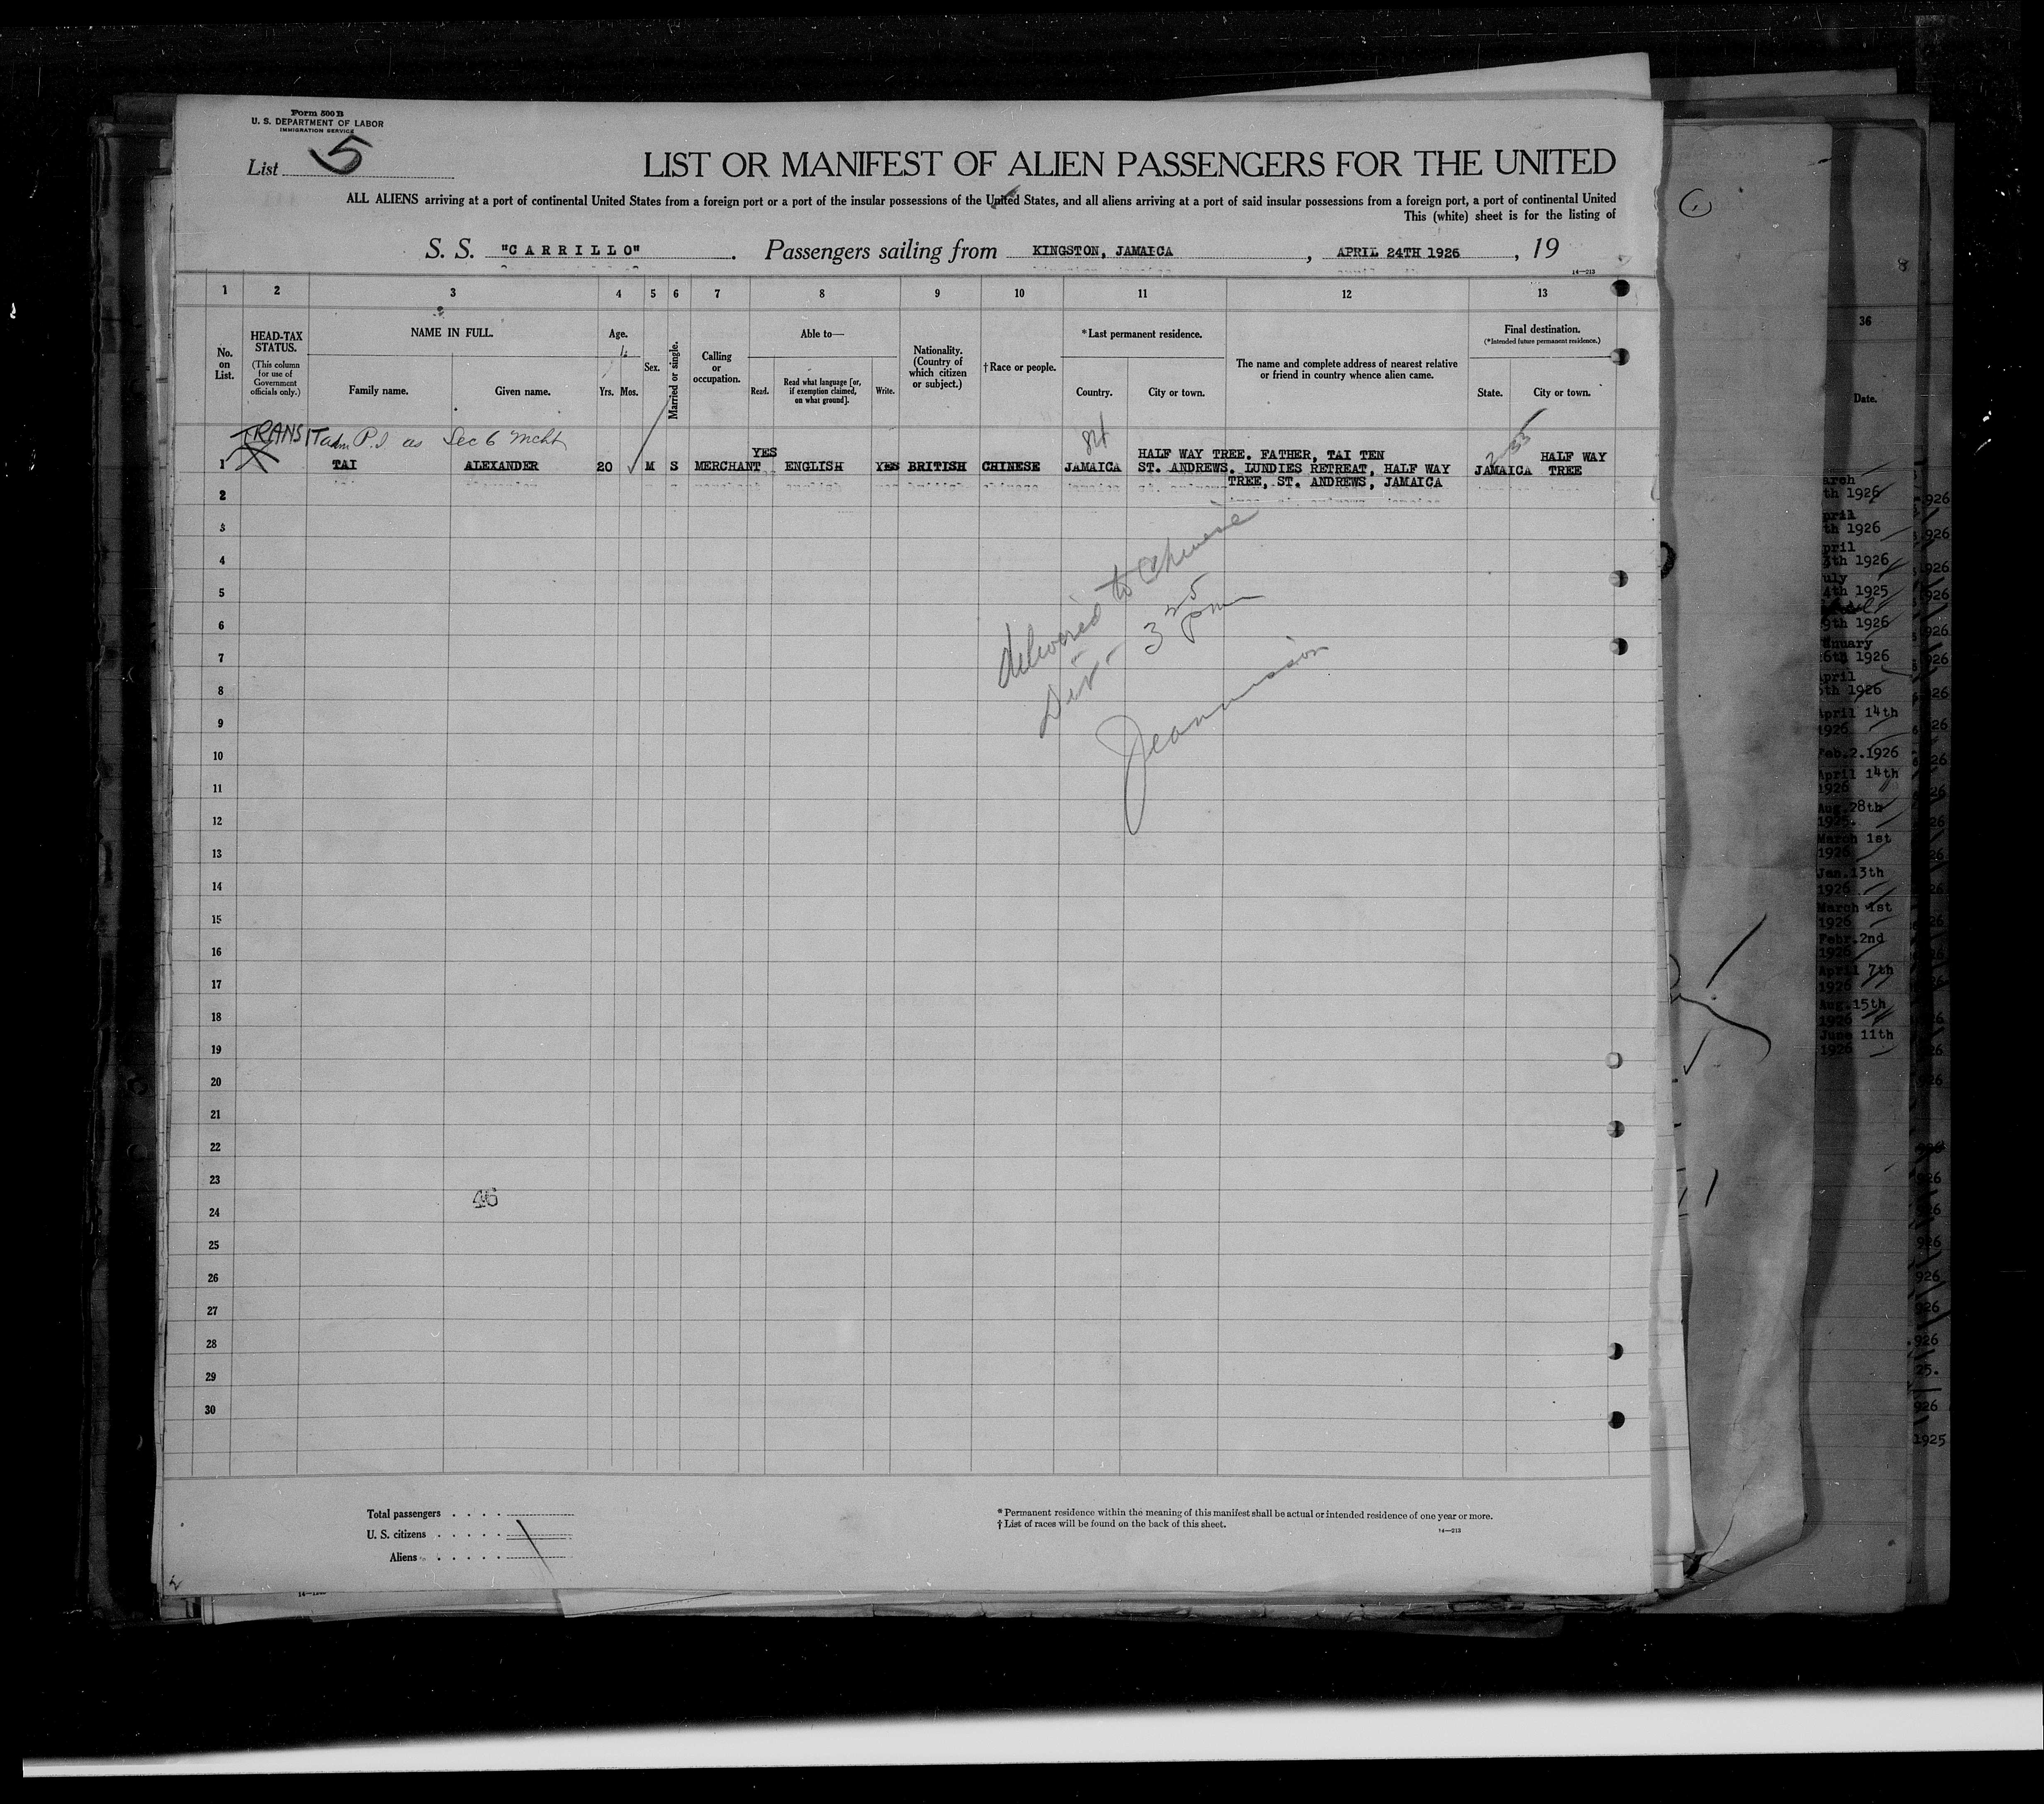 Form 500 B
U. S. DEPARTMENT OF LABOR
IMMIGRATION SERVICE
List 5
LIST OR MANIFEST OF ALIEN PASSENGERS FOR THE UNITED
ALL ALIENS arriving at a port of continental United States from a foreign port or a port of the insular possessions of the United States, and all aliens arriving at a port of said insular possessions from a foreign port, a port of continental United
This (white) sheet is for the listing of
S. S. "CARRILLO". Passengers sailing from KINGSTON, JAMAICA, APRIL 24TH 1926, 19
14—213
1 2 3 4 5 6 7 8 9 10 11 12 13
No. on List.
HEAD-TAX STATUS.
(This column for use of Government officials only.)
NAME IN FULL.
Family name.
Given name.
Age.
Yrs. Mos.
Sex.
Married or single.
Calling or occupation.
Able to—
Read.
Read what language [or, if exemption claimed, on what ground].
Write.
Nationality. (Country of which citizen or subject.)
†Race or people.
*Last permanent residence.
Country.
City or town.
The name and complete address of nearest relative or friend in country whence alien came.
Final destination.
(*Intended future permanent residence.)
State.
City or town.
TRANSIT adm P.I as Sec 6 mcht
1 TAI ALEXANDER 20 M S MERCHANT YES ENGLISH YES BRITISH CHINESE JAMAICA HALF WAY TREE. FATHER, TAI TEN
ST. ANDREWS. LUNDIES RETREAT, HALF WAY
TREE, ST. ANDREWS, JAMAICA
JAMAICA HALF WAY TREE
2
3
4
5
6
7
8
9
10
11
12
13
14
15
16
17
18
19
20
21
22
23
24
25
26
27
28
29
30
delivered to Chinese
Div - 3 25 pm
46
Total passengers
U. S. citizens
Aliens
* Permanent residence within the meaning of this manifest shall be actual or intended residence of one year or more.
† List of races will be found on the back of this sheet.
14—213
36
Date.
April 14th
1926
Feb.2.1926
April 14th
1926
Aug.28th
1925.
March 1st
1926
Jan.13th
1926
March 1st
1926
Febr.2nd
1926
April 7th
1926
Aug.15th
1926
June 11th
1926
1925